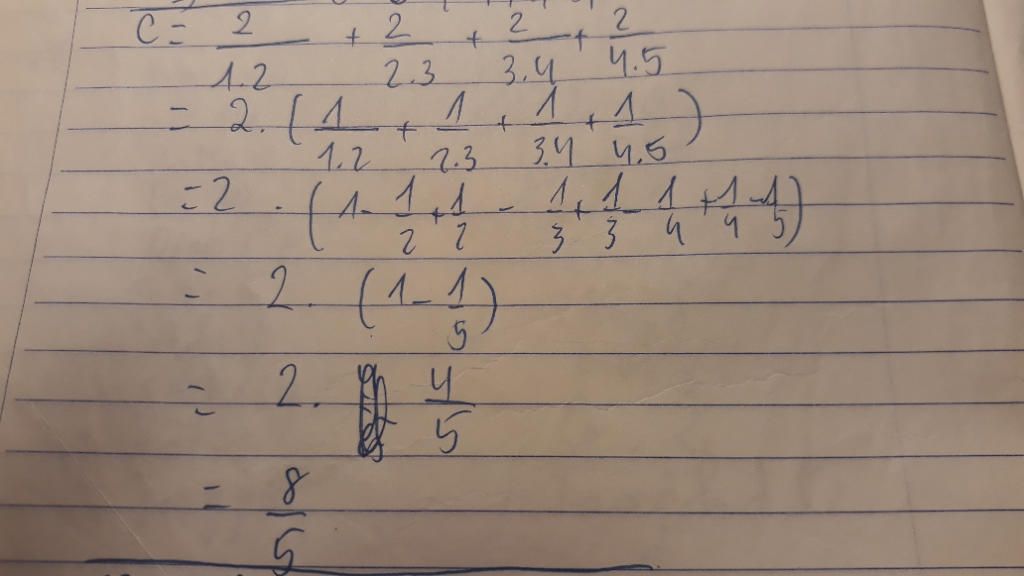 C = 2/1.2 + 2/2.3 + 2/3.4 + 2/4.5
= 2. (1/1.2 + 1/2.3 + 1/3.4 + 1/4.5)
= 2 . (1 - 1/2 + 1/2 - 1/3 + 1/3 - 1/4 + 1/4 - 1/5)
= 2. (1 - 1/5)
= 2. 4/5
= 8/5